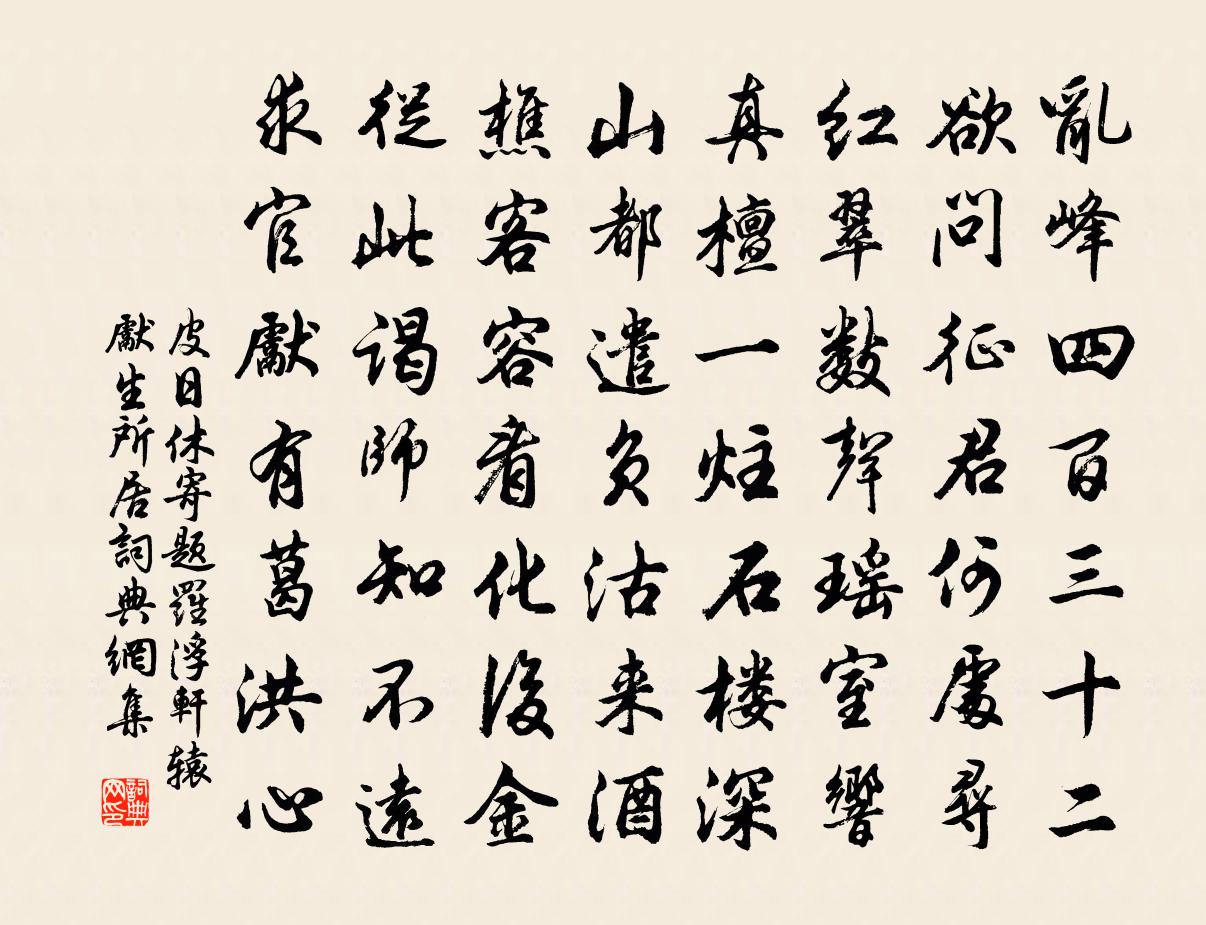 亂峰四百三十二
欲問征君何處尋
红翠數聲瑶室響
真檀一炷石楼深
山都遣负沽来酒
樵客容看化後金
從此谒師知不遠
求官獻有葛洪心
皮日休寄题羅浮軒辕
獻生所居詞典網集
詞典网印